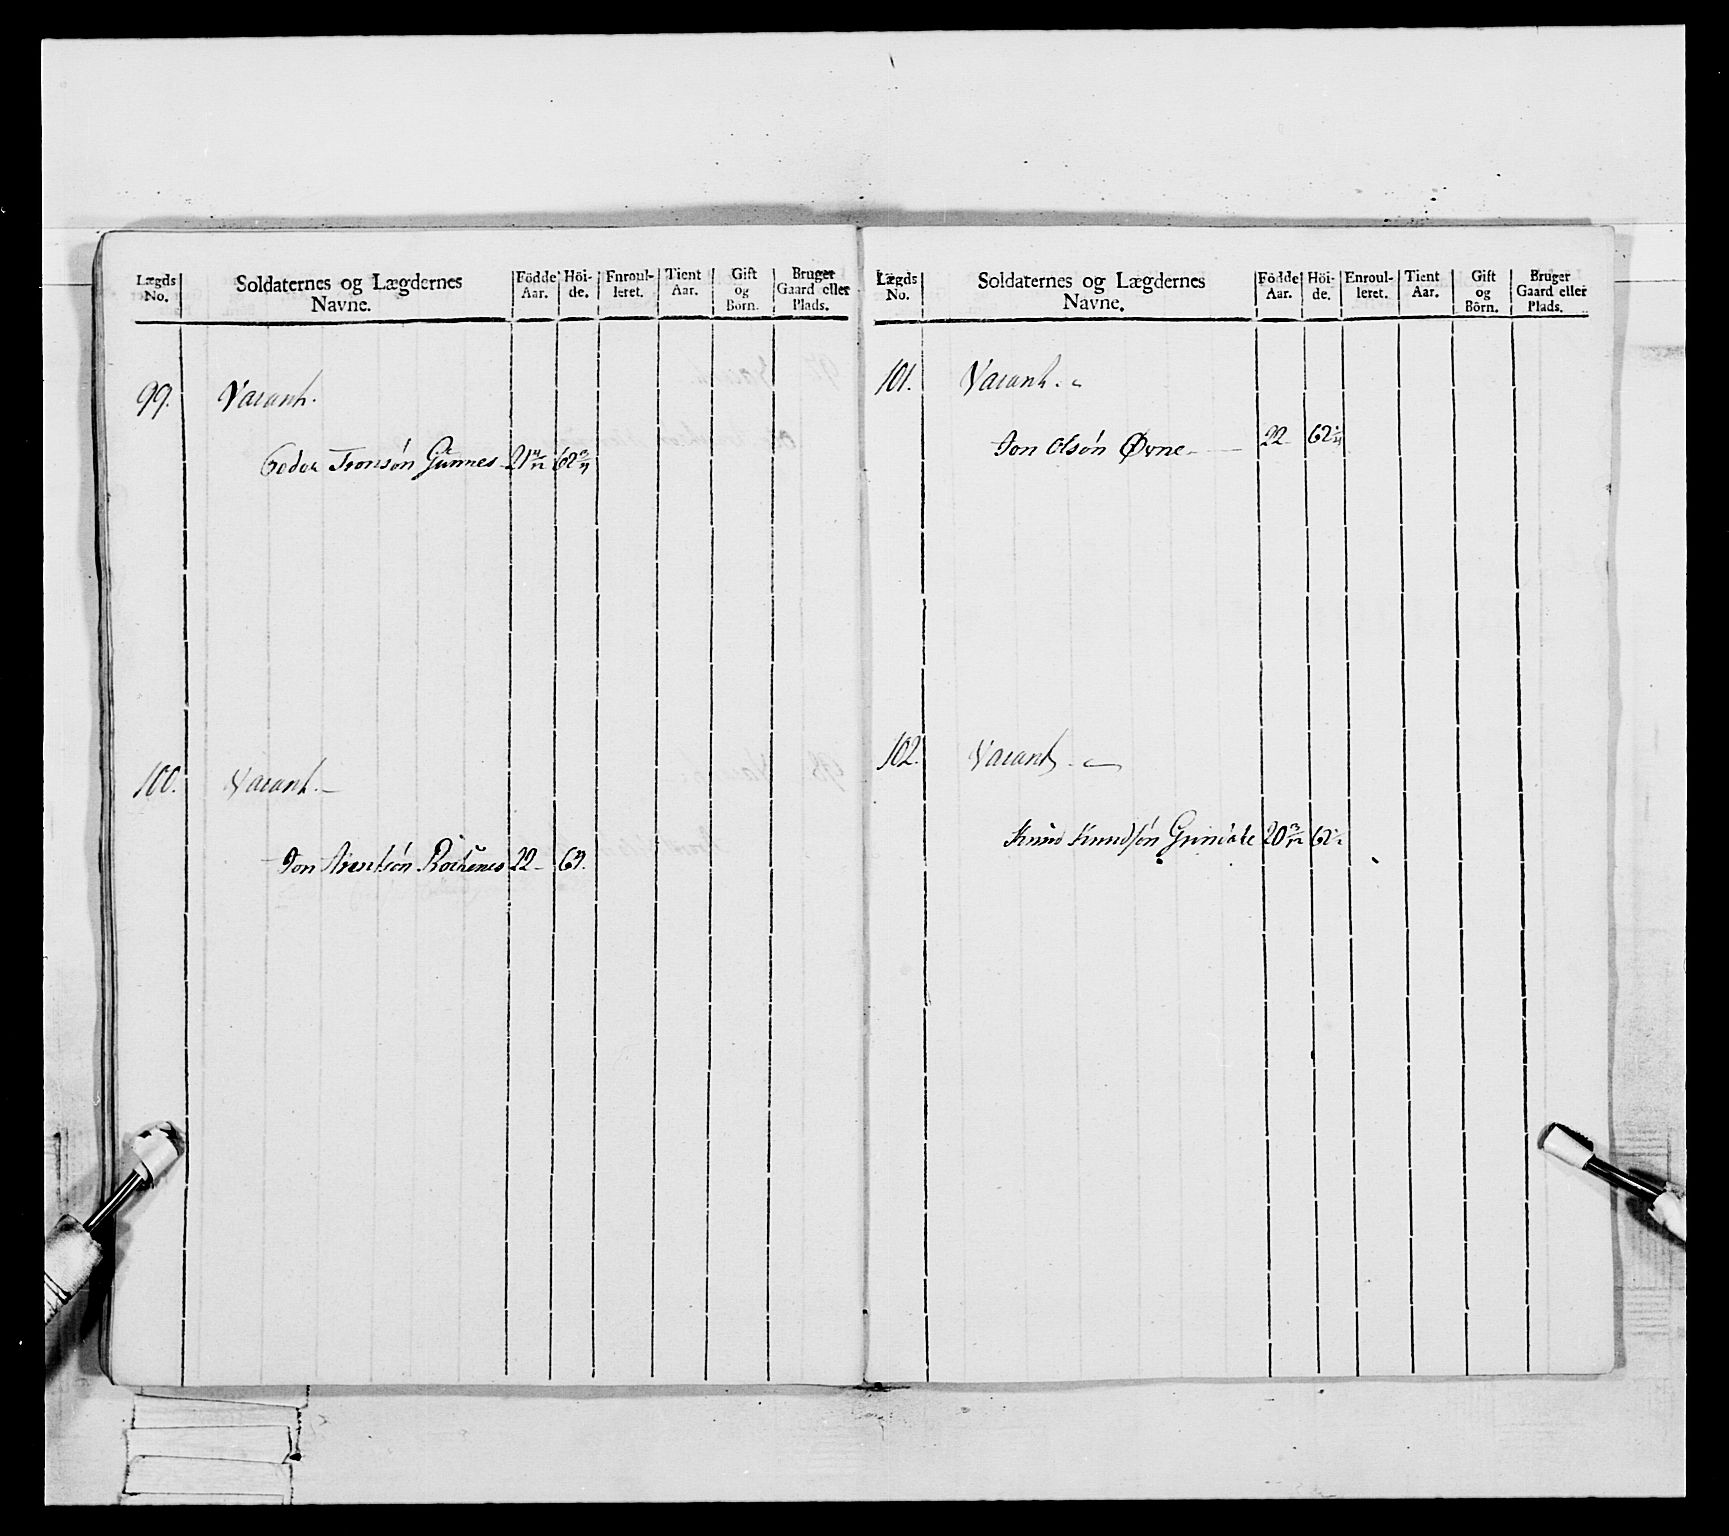 Lægds No. Soldaternes og Lægdernes Navne. Födde Aar. Höi-de. Enroul-leret. Tient Aar. Gift og Börn. Bruger Gaard eller Plads.
99. Vacant.
Peder Tronsön Gunnes 21 62
100. Vacant.
Jon Arentsön 22 — 63.
Lægds No. Soldaternes og Lægdernes Navne. Födde Aar. Höi-de. Enroul-leret. Tient Aar. Gift og Börn. Bruger Gaard eller Plads.
101. Vacant.
Jon Olsön Øvne 22 62
102. Vacant
Knud Knudsön Grindale 20 62